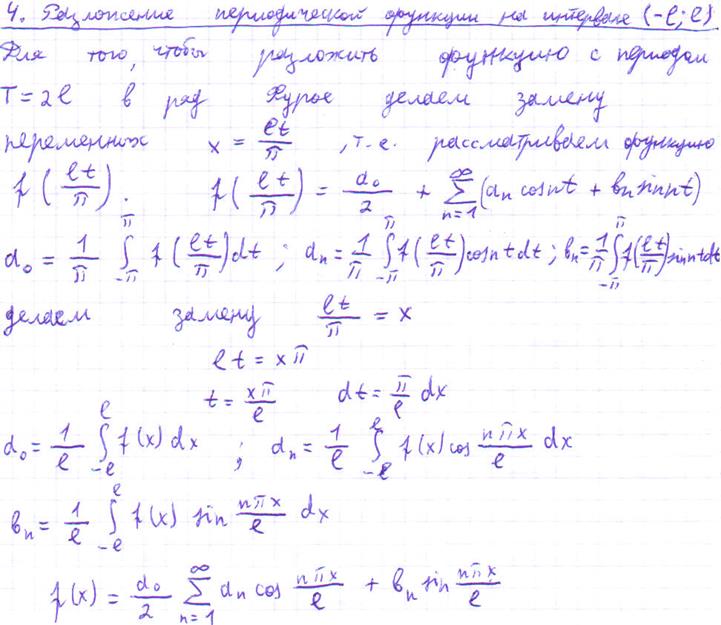 4. Разложение периодической функции на интервале (-ℓ; ℓ)
Для того, чтобы разложить функцию с периодом
T = 2ℓ в ряд Фурье делаем замену
переменных x = ℓt/π, т.е. рассматриваем функцию
f(ℓt/π). f(ℓt/π) = a₀/2 + ∑_{n=1}^{∞} (aₙ cos nt + bₙ sin nt)
a₀ = 1/π ∫_{-π}^{π} f(ℓt/π)dt; aₙ = 1/π ∫_{-π}^{π} f(ℓt/π) cos nt dt; bₙ = 1/π ∫_{-π}^{π} f(ℓt/π) sin nt dt
делаем замену ℓt/π = x
ℓt = xπ
t = xπ/ℓ dt = π/ℓ dx
a₀ = 1/ℓ ∫_{-ℓ}^{ℓ} f(x) dx ; aₙ = 1/ℓ ∫_{-ℓ}^{ℓ} f(x) cos nπx/ℓ dx
bₙ = 1/ℓ ∫_{-ℓ}^{ℓ} f(x) sin nπx/ℓ dx
f(x) = a₀/2 ∑_{n=1}^{∞} aₙ cos nπx/ℓ + bₙ sin nπx/ℓ